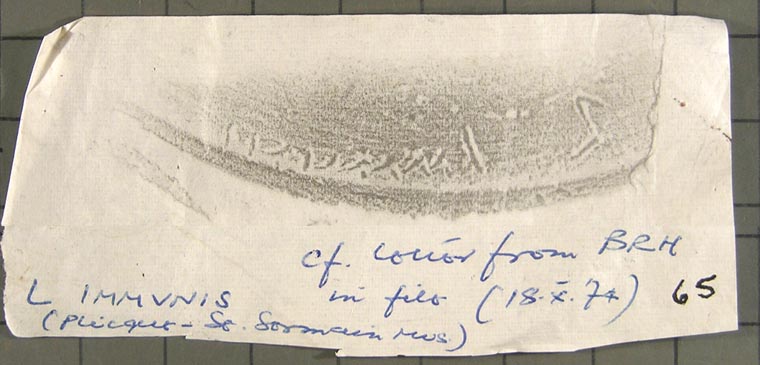 cf. letter from BRH
L IMMVNIS in file (18.X.74) 65
(Plicque - St. Germain Mus.)